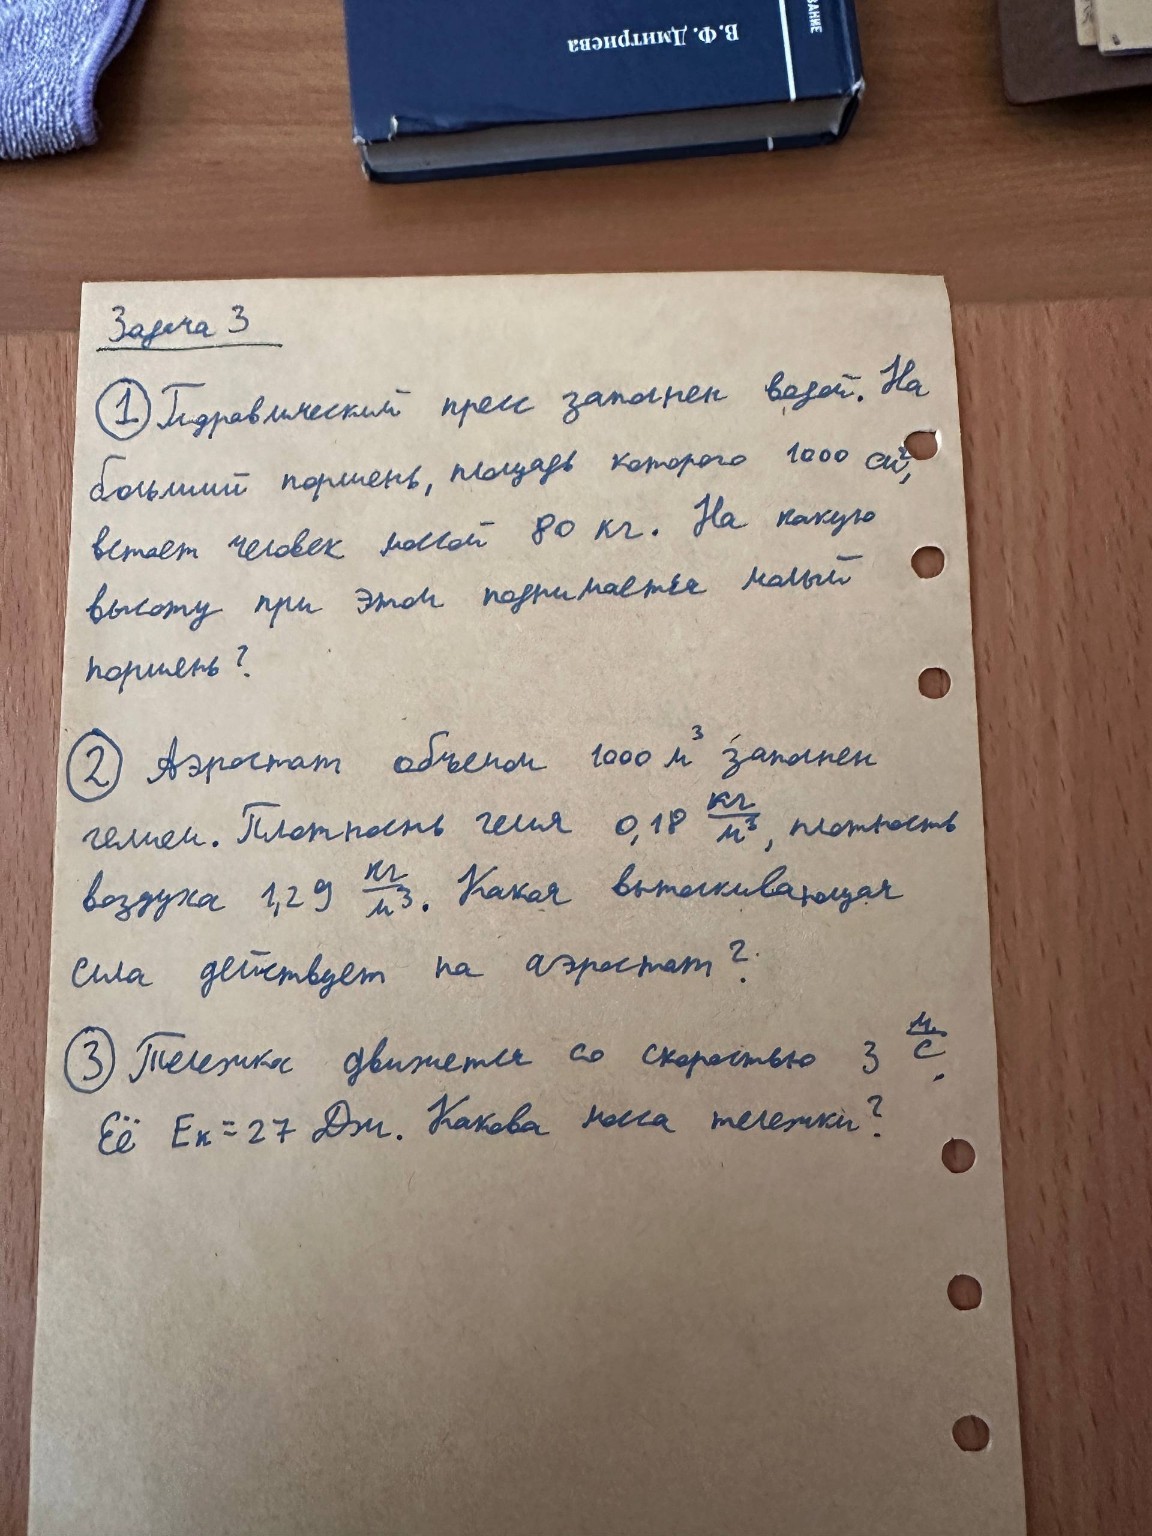 В.Ф. Дмитриева
Задача 3
① Гидравлический пресс заполнен водой. На
больший поршень, площадь которого 1000 см²,
встает человек массой 80 кг. На какую
высоту при этом поднимается малый
поршень?
② Аэростат объемом 1000 м³ заполнен
гелием. Плотность гелия 0,18 кг/м³, плотность
воздуха 1,29 кг/м³. Какая выталкивающая
сила действует на аэростат?
③ Тележка движется со скоростью 3 м/с.
Её Eк = 27 Дж. Какова масса тележки?